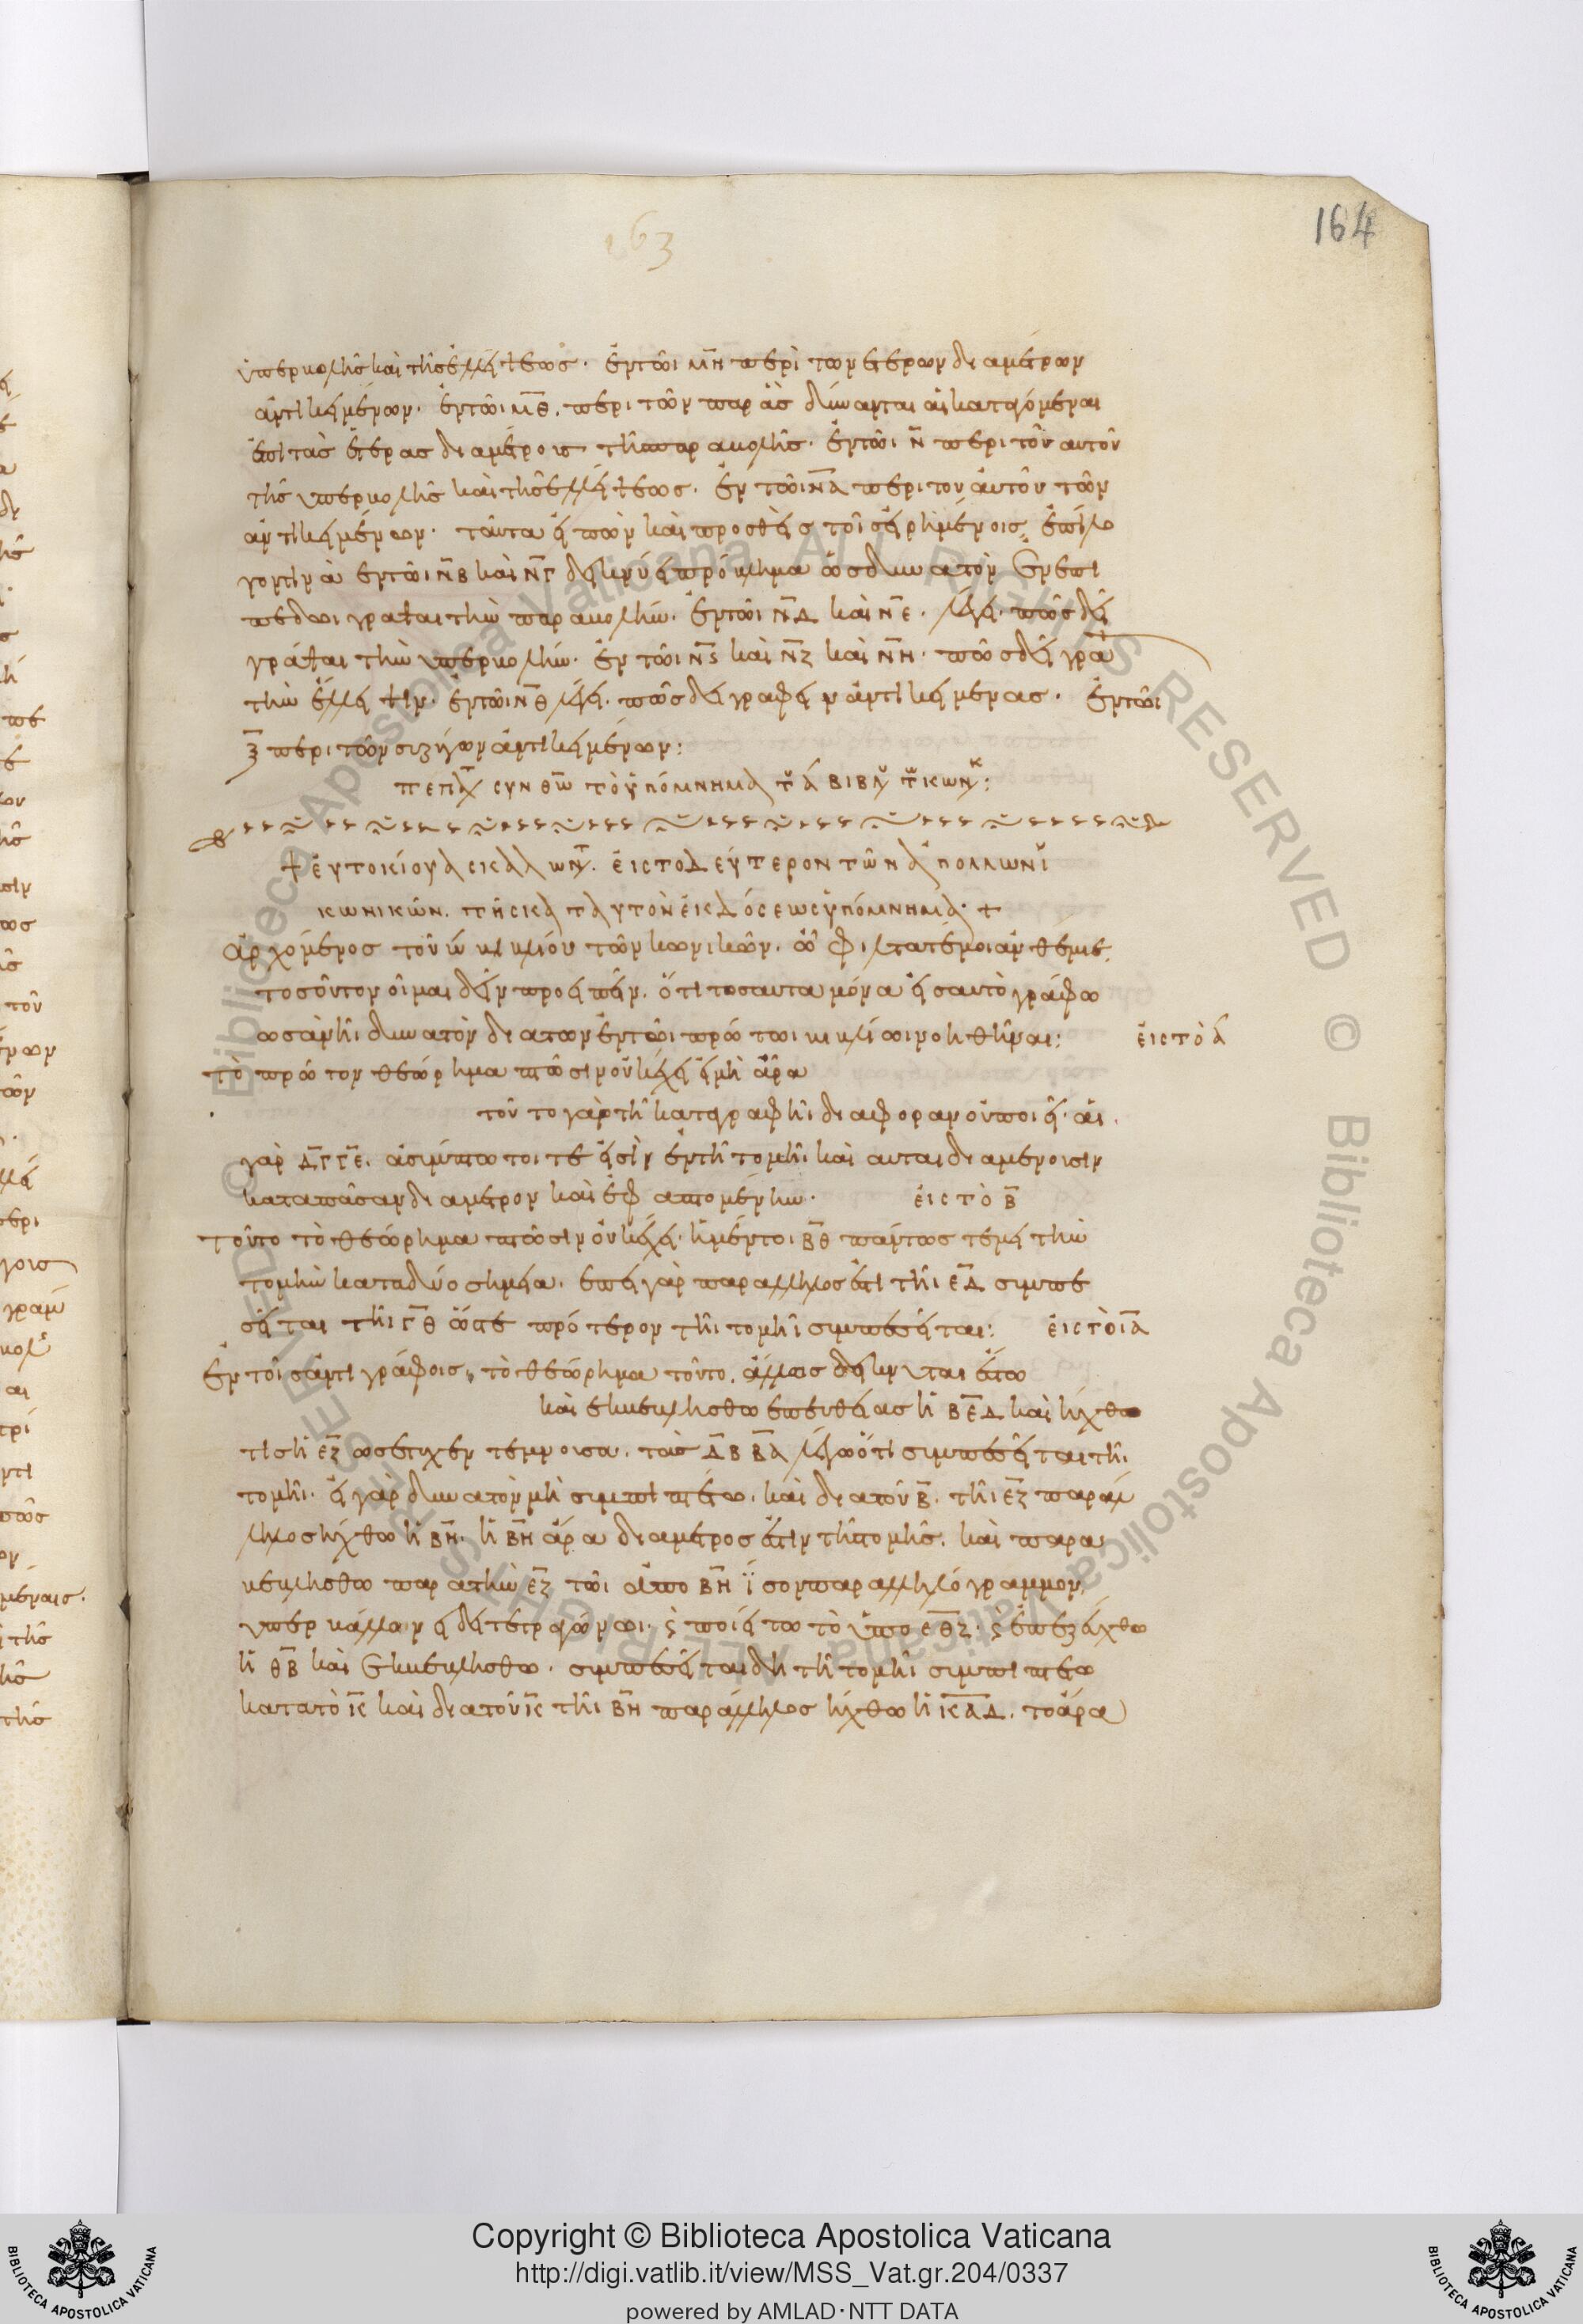 164
163
ὑπερβολῆς καὶ τῆς ἐλλείψεως. ἐν τῶι μη περὶ τῶν ἑτέρων διαμέτρων
ἀντικειμένων. ἐν τῶι μθ. περὶ τῶν παρ ἃς δύνανται αἱ καταγόμεναι
ἐπὶ τὰς ἑτέρας διαμέτρους τῆς παραβολῆς. ἐν τῶι ν περὶ τοῦ αὐτοῦ
τῆς ὑπερβολῆς καὶ τῆς ἐλλείψεως. ἐν τῶι να περὶ τοῦ αὐτοῦ τῶν
ἀντικειμένων. ταῦτα εἰπὼν καὶ προσθεὶς τοῖς εἰρημένοις ἐπίλο
γόν τινα ἐν τῶι νβ καὶ νγ δείκνυσι πρόβλημα ὡς δυνατὸν ἐν ἐπι
πέδωι γράψαι τὴν παραβολήν. ἐν τῶι νδ καὶ νε. λέγει. πῶς δεῖ
γράψαι τὴν ὑπερβολήν. ἐν τῶι νς καὶ νζ καὶ νη. πῶς δεῖ γράψαι
τὴν ἔλλειψιν. ἐν τῶι νθ λέγει. πῶς δεῖ γράφειν ἀντικειμένας. ἐν τῶι
ξ περὶ τῶν συζύγων ἀντικειμένων:
ΤΟ ΥΠΟΜΝΗΜΑ
ΕΥΤΟΚΙΟΥ ΑΣΚΑΛΩΝΤ. ΕΙΣ ΤΟ ΔΕΥΤΕΡΟΝ ΤΩΝ ΑΠΟΛΛΩΝΙ
ΚΩΝΙΚΩΝ. ΤΗΣ ΚΑΤ ΑΥΤΟΝ ΕΚΔΟΣΕΩΣ ΥΠΟΜΝΗΜΑ +
ἀρχόμενος τοῦ β βιβλίου τῶν κωνικῶν. ὦ φίλτατέ μοι ἀνθέμιε.
τοσοῦτον οἶμαι δεῖν προειπεῖν. ὅτι τοσαῦτα μόνα εἰς αὐτὸ γράφω
ὅσα ἂν ᾖ δυνατὸν διὰ τῶν ἐν τῶι πρώτωι βιβλίωι νοηθῆναι: ΕΙΣ ΤΟ Α
τὸ πρῶτον θεώρημα πτῶσιν οὐκ ἔχει εἰ μὴ ἄρα
τοῦτο γὰρ τῆι καταγραφῆι διαφορὰν οὐ ποιεῖ. αἱ
γὰρ ΔΓ ΓΕ. ἀσύμπτωτοί τέ εἰσιν ἐν τῆι τομῆι καὶ αὗται διαμένουσιν
κατὰ πᾶσαν διάμετρον καὶ ἐφαπτομένην. ΕΙΣ ΤΟ Β
τοῦτο τὸ θεώρημα πτῶσιν οὐκ ἔχει. ἡ μέντοι ΒΘ πάντως τεμεῖ τὴν
τομὴν κατὰ δύο σημεῖα. ἐπεὶ γὰρ παράλληλός ἐστι τῆι ΕΔ συμπε
σεῖται τῆι ΓΘ ὥστε πρότερον τῆι τομῆι συμπεσεῖται: ΕΙΣ ΤΟ ΙΑ
ἔν τισιν ἀντιγράφοις τὸ θεώρημα τοῦτο. ἄλλως δείκνυται ἔστω
καὶ ἐκβεβλήσθω ἐπ εὐθείας ἡ ΒΕΔ καὶ ἤχθω
τις ἡ ΕΖ ὡς ἔτυχεν τέμνουσα. τὰς ΔΒ ΒΑ λέγω ὅτι συμπεσεῖται τῆι
τομῆι. εἰ γὰρ δυνατὸν μὴ συμπιπτέτω. καὶ διὰ τοῦ Β. τῆι ΕΖ παράλ
ληλος ἤχθω ἡ ΒΗ. ἡ ΒΗ ἄρα διάμετρός ἐστιν τῆς τομῆς. καὶ παρα
βεβλήσθω παρὰ τὴν ΕΖ τῶι ἀπὸ ΒΗ ἴσον παραλληλόγραμμον
ὑπερβάλλον εἴδει τετραγώνωι. καὶ ποιείτω τὸ ὑπὸ ΕΘΖ. καὶ ἐπεζεύχθω
ἡ ΘΒ καὶ ἐκβεβλήσθω. συμπεσεῖται δὴ τῆι τομῆι συμπιπτέτω
κατὰ τὸ Κ καὶ διὰ τοῦ Κ τῆι ΒΗ παράλληλος ἤχθω ἡ ΚΑΔ. τὸ ἄρα
© Biblioteca Apostolica Vaticana ALL RIGHTS RESERVED
Copyright © Biblioteca Apostolica Vaticana
http://digi.vatlib.it/view/MSS_Vat.gr.204/0337
powered by AMLAD·NTT DATA
BIBLIOTECA APOSTOLICA VATICANA
BIBLIOTECA APOSTOLICA VATICANA